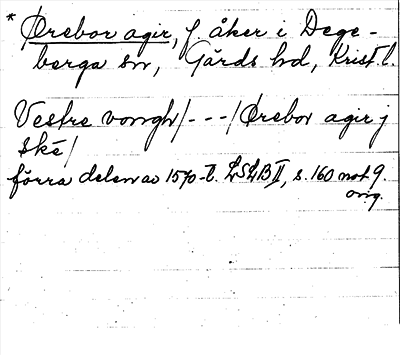 * Ørebor agir, f. åker i Dege-
berga sn, Gärds hd, Krist. l.
Vestre vongh/---/Ørebor agir j
ské/
förra delen av 1570-t. LSLB II, s. 160 not 9.
orig.